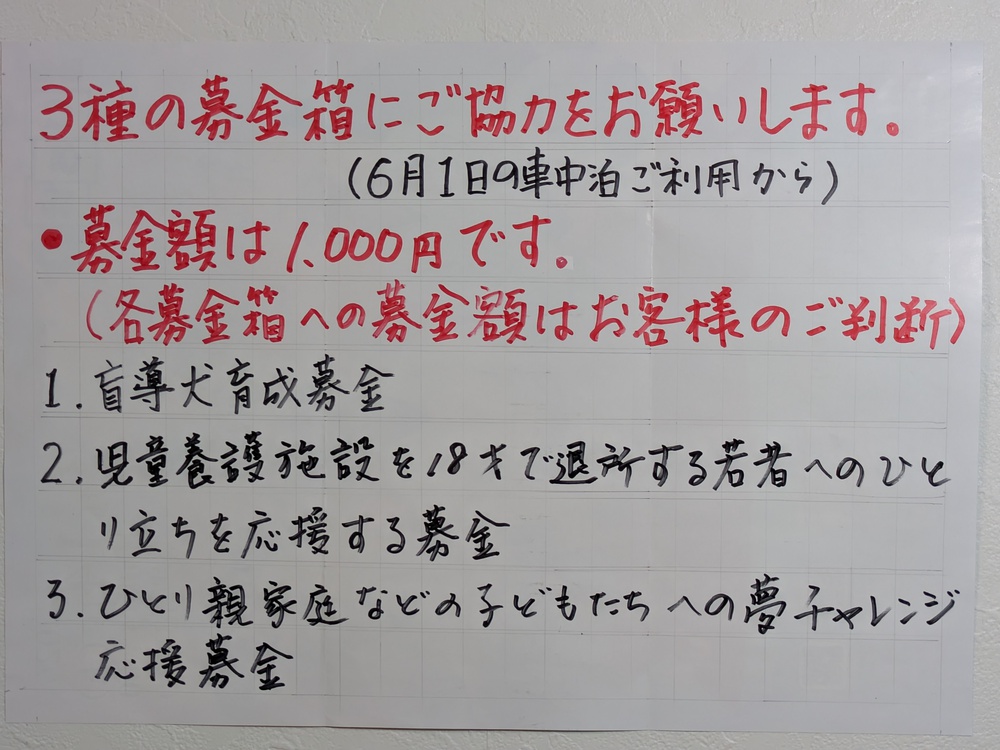 3種の募金箱にご協力をお願いします。
(6月1日の車中泊ご利用から)
・募金額は1,000円です。
(各募金箱への募金額はお客様のご判断)
1.盲導犬育成募金
2.児童養護施設を18才で退所する若者へのひと
り立ちを応援する募金
3.ひとり親家庭などの子どもたちへの夢チャレンジ
応援募金